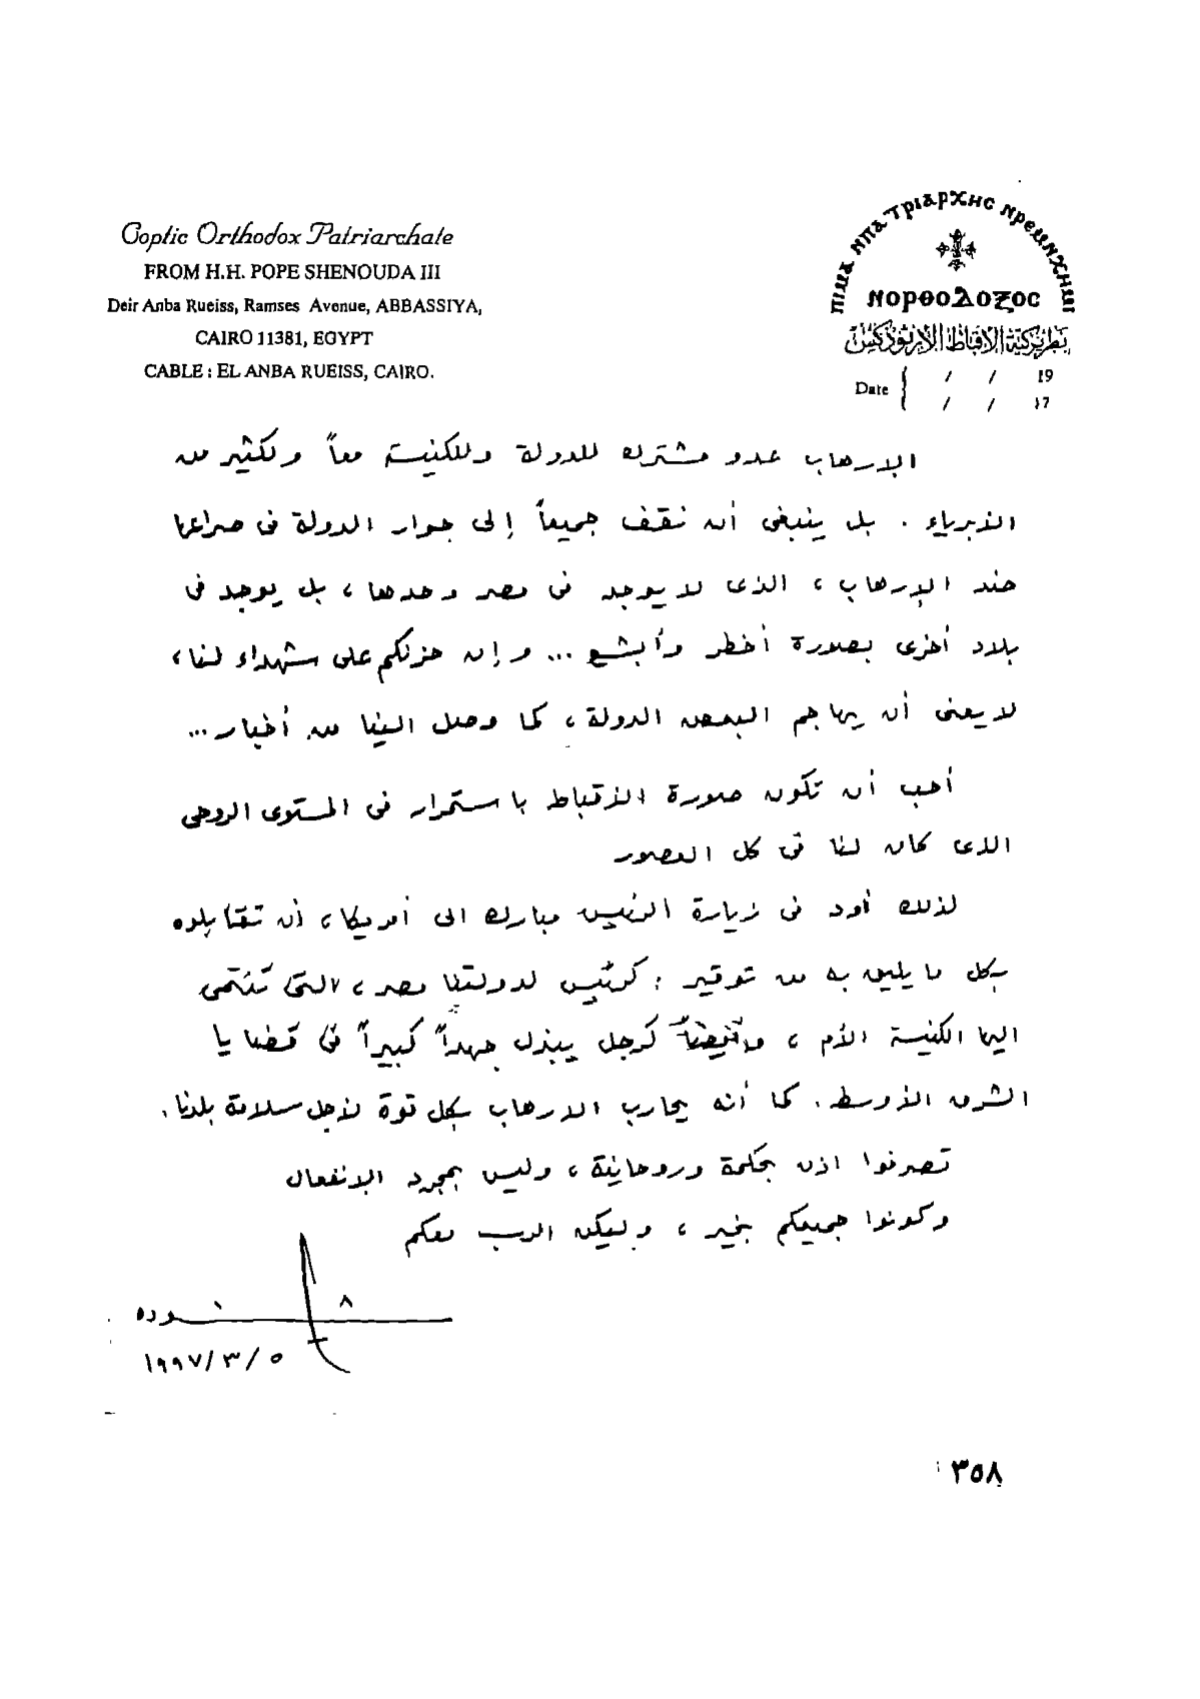 Coptic Orthodox Patriarchate
FROM H.H. POPE SHENOUDA III
Deir Anba Rueiss, Ramses Avenue, ABBASSIYA,
CAIRO 11381, EGYPT
CABLE : EL ANBA RUEISS, CAIRO.
ⲡⲓⲙⲁ ⲙⲡⲁⲧⲣⲓⲁⲣⲭⲏⲥ ⲛⲣⲉⲙⲛⲭⲏⲙⲓ
ⲛⲟⲣⲑⲟⲇⲟⲝⲟⲥ
بطريركية الأقباط الأرثوذكس
Date / / 19
/ / 17
الإرهاب عدو مشترك للدولة وللكنيسة معاً ولكثير من
الأبرياء . بل ينبغى أن نقف جميعاً إلى جوار الدولة فى صراعها
ضد الإرهاب ، الذى لا يوجد فى مصر وحدها ، بل يوجد فى
بلاد أخرى بصورة أخطر وأبشع ... وإن حزنكم على شهداء لنا ،
لا يعنى أن يهاجم البعض الدولة ، كما وصل الينا من أخبار ...
أحب أن تكون صورة الأقباط باستمرار فى المستوى الروحى
الذى كان لنا فى كل العصور
لذلك أود فى زيارة الرئيس مبارك الى أمريكا ، أن تقابلوه
بكل ما يليق به من توقير : كرئيس لدولتنا مصر ، التى تنتمى
اليها الكنيسة الأم ، وأيضاً كرجل يبذل جهداً كبيراً فى قضايا
الشرق الأوسط . كما أنه يحارب الارهاب بكل قوة لأجل سلامة بلدنا .
تصرفوا اذن بحكمة وروحانية ، وليس بمجرد الإنفعال
وكونوا جميعكم بخير ، وليكن الرب معكم
شنوده
٥ / ٣ / ١٩٩٧
٣٥٨